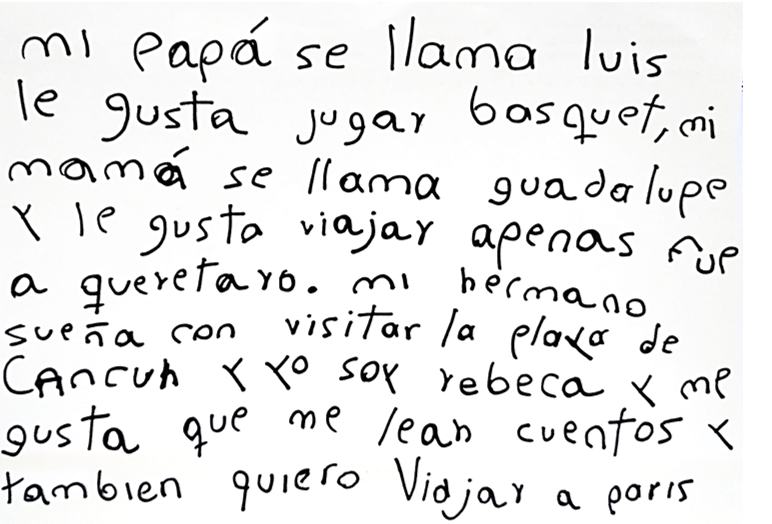 mi papá se llama luis
le gusta jugar basquet, mi
mamá se llama guadalupe
y le gusta viajar apenas fue
a queretaro. mi hermano
sueña con visitar la playa de
Cancun y yo soy rebeca y me
gusta que me lean cuentos y
tambien quiero viajar a paris